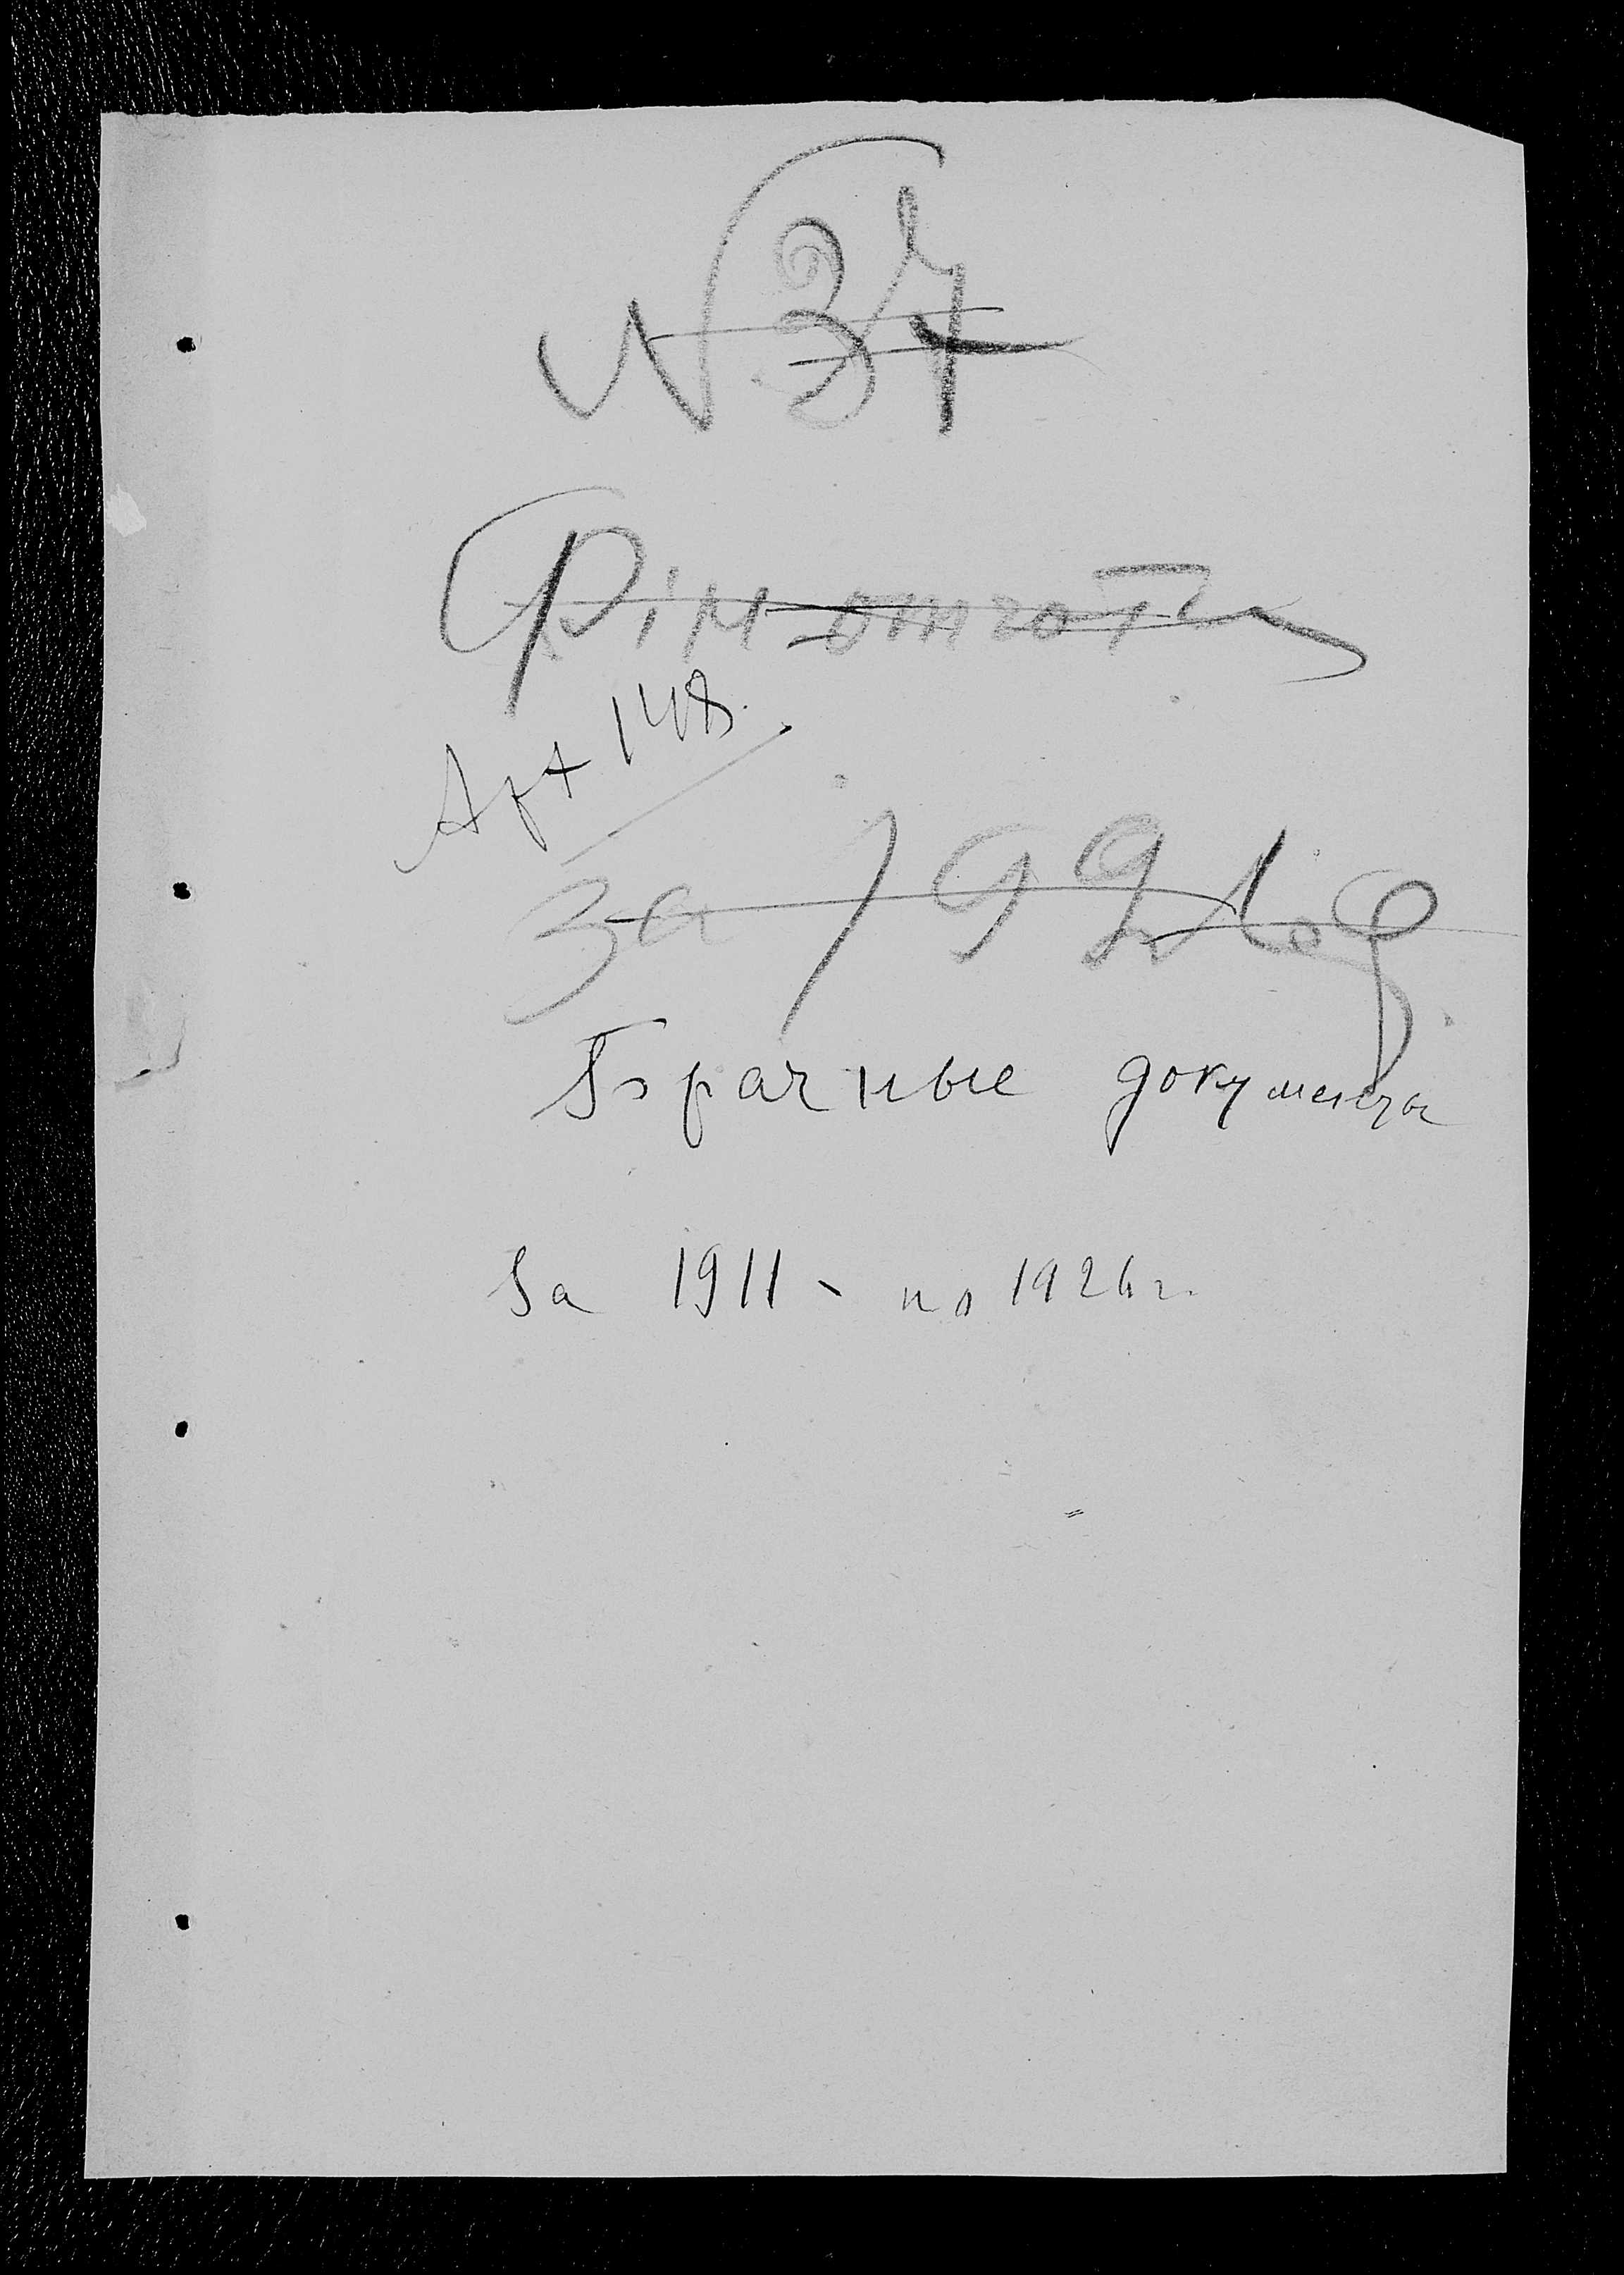 N 37
Фін отчоти
Арх 148.
За 1921 год
Брачные документы
За 1911 - по 1926 г.